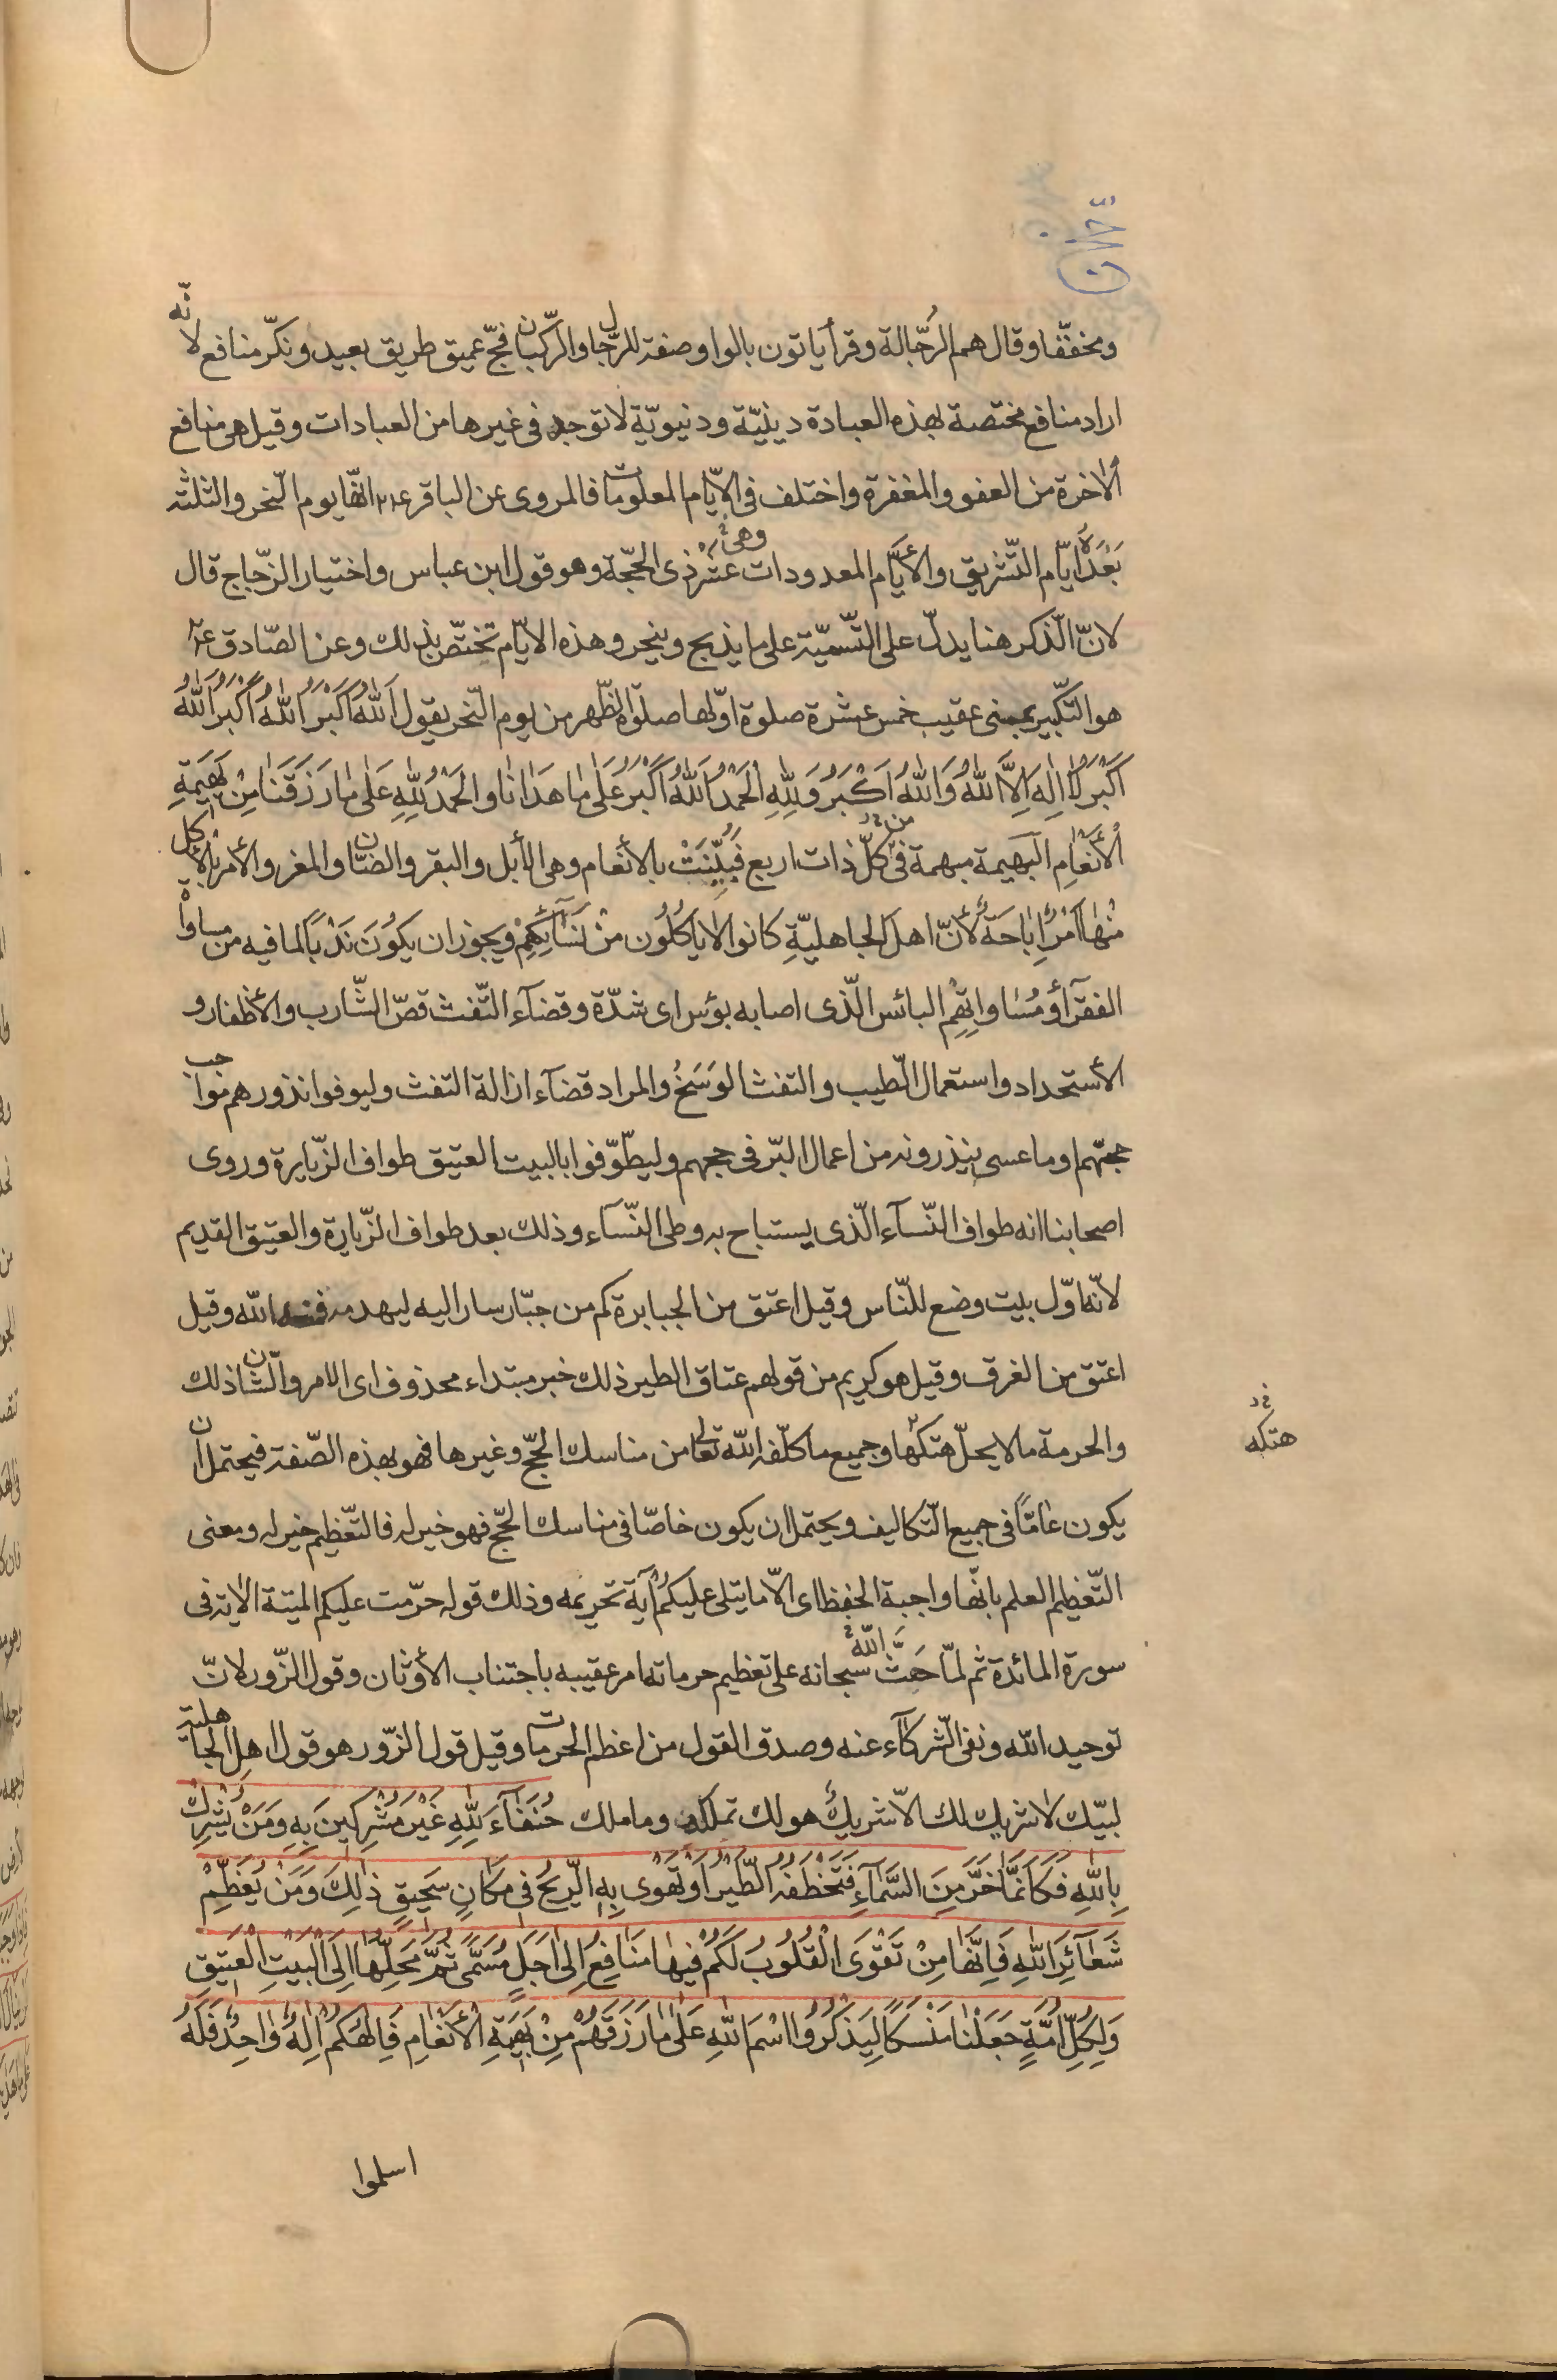 ومخفّفا وقال هم الرجّالة وقرأ ياتون بالواو صفة للرّجال والركبان فجّ عميق طريق بعيد ونكّر منافع لانّه
اراد منافع مختصة بهذه العبادة دينيّة ودنيويّة لا توجد فى غيرها من العبادات وقيل هى منافع
الاخرة من العفو والمغفرة واختلف فى الايّام المعلومات فالمروى عن الباقر ع انّها يوم النّحر والثلثة
بَعْدَهُ ايّام التّشريق والأيّام المعدودات عشر ذى الحجّة وهو قول ابن عباس واختيار الزّجاج قال
وهى
لانّ الذّكر هنا يدلّ على التّسميّة على ما يذبح وينحر وهذه الايّام تختصّ بذلك وعن الصّادق ع
هو التّكبير بمنى عقيب خمس عشرة صلوة اوّلها صلوة الظّهر من يوم النّحر يقول اَللهُ اَكْبَرُ اَللهُ اَكْبَرُ اَللهُ
اَكْبَرُ لا اِلهَ اِلَّا اللهُ وَاللهُ اَكْبَرُ وَلِلّهِ الْحَمْدُ اَللهُ اَكْبَرُ عَلى ما هَدانا والْحَمْدُ لِلّهِ عَلى ما رَزَقَنا مِنْ بَهيمَةِ
الْأَنْعامِ البهيمة مبهمة فى كلّ ذات اربع فَبُيِّنَتْ بالأنعام وهى الأبل والبقر والضّان والمغر والأمر بالأكل
من
مِنْها اَمْرُ اِباحَة لأنّ اهل الجاهليّةِ كانوا لا يأكُلُون مِنْ نَسَائِكِهِمْ ويجوز ان يكُونَ نَدْباً لما فيه من مساواة
الفقرآء ومُساواتِهِم البائس الّذى اصابه بؤس اى شدّة وقضآء التّفث قصّ الشّارب والأظفار و
الأستحداد واستعمال الطّيب والتفث الوَسَخُ والمراد قضآء ازالة التفث وليوفوا نذورهم مواجب
حجّهم او ما عسى ينذرونه من اعمال البّر فى حجهم وليطّوّفوا بالبيت العتيق طواف الزّيارة وروى
اصحابنا انه طواف النّسآء الّذى يستباح به وطى النّسآء وذلك بعد طواف الزّيارة والعتيق القديم
لانّه اوّل بيت وضع للنّاس وقيل اعتق من الجبابرة كم من جبّار سار اليه ليهدمه فمنعه الله وقيل
اعتق من الغرق وقيل هو كريم من قولهم عتاق الطير ذلك خبر مبتداء محذوف اى الامر والشّان ذلك
والحرمة ما لا يحلّ هتكها وجميع ما كلّفه الله تعالى من مناسك الحجّ وغيرها فهو بهذه الصّفة فيحتمل ان
هتكه
يكون عامّاً فى جميع التّكاليف ويحتمل ان يكون خاصّا فى مناسك الحجّ فهو خير له فالتّعظيم خير له ومعنى
التّعظيم العلم بانّها واجبة الحفظ اى الّا ما يتلى عليكم آية تحريمه وذلك قوله حرّمت عليكم الميتة الاية فى
سورة المائدة ثم لمّا حَثَّ اللّه سبحانه على تعظيم حرماته امر عقيبه باجتناب الأوثان وقول الزّور لانّ
توحيد الله ونفى الشّركآء عنه وصدق القول من اعظم الحرمات وقيل قول الزّور هو قول اهل الجاهلية
لبيّك لا شريك لك الاّ شريكٌ هو لك تملكه وما ملك حُنَفآءَ لِلّهِ غَيْرَ مُشْرِكينَ بِهِ وَمَنْ يُشْرِكْ
بِاللهِ فَكَاَنَّما خَرَّ مِنَ السَّمآءِ فَتَخْطَفُهُ الطَّيْرُ اَوْ تَهْوى بِهِ الرّيحُ فى مَكانٍ سَحيقٍ ذلِكَ وَمَنْ يُعَظِّمْ
شَعآئِرَ اللهِ فَاِنَّها مِنْ تَقْوَى الْقُلُوبُ لَكُمْ فيها مَنافِعُ اِلى اَجَلٍ مُسَمًّى ثُمَّ مَحِلُّها اِلَى الْبَيْتِ الْعَتيقِ
وَلِكُلِّ اُمَّةٍ جَعَلْنا مَنْسَكاً لِيَذْكُرُوا اسْمَ اللهِ عَلى ما رَزَقَهُمْ مِنْ بَهيمَةِ الْأَنْعامِ فَاِلهُكُمْ اِلهٌ واحِدٌ فَلَهُ
اسلموا